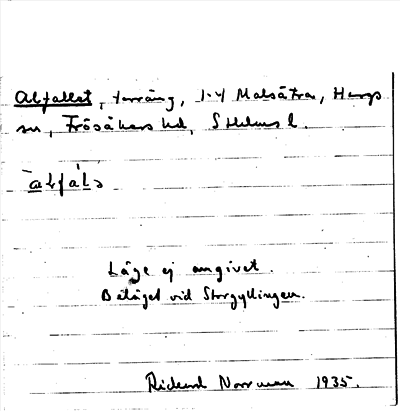 Alfallet, terräng, 1-4 Malsätra, Hargs
sn, Frösåkers hd, Sthlms l.
alfàls
Läge ej angivet.
Beläget vid Storgyllingen.
Rickard Norrman 1935.